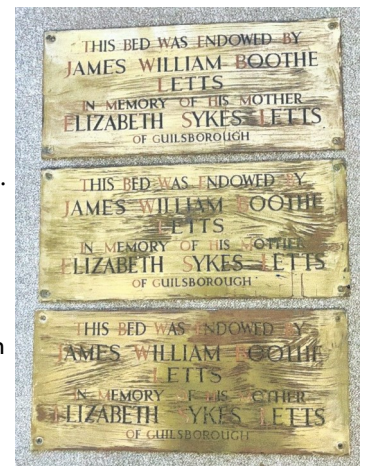 THIS BED WAS ENDOWED BY
JAMES WILLIAM BOOTHE
LETTS
IN MEMORY OF HIS MOTHER
ELIZABETH SYKES LETTS
OF GUILSBOROUGH
THIS BED WAS ENDOWED BY
JAMES WILLIAM BOOTHE
LETTS
IN MEMORY OF HIS MOTHER
ELIZABETH SYKES LETTS
OF GUILSBOROUGH
THIS BED WAS ENDOWED BY
JAMES WILLIAM BOOTHE
LETTS
IN MEMORY OF HIS MOTHER
ELIZABETH SYKES LETTS
OF GUILSBOROUGH